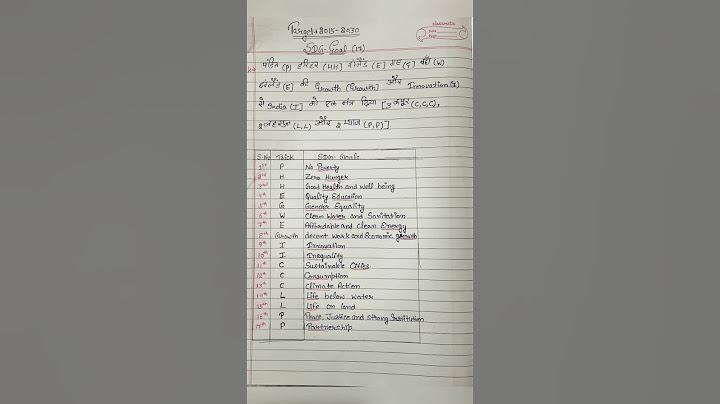 classmate
Date
Page
Target→2015-2030
SDG-Goal (17)
पंडित (P) हरिहर (HH) इंग्लैंड (E) गए (G) वहाँ (W)
इंग्लैंड (E) की Growth (Growth) और Innovation (I)
से India (I) को एक मंत्र दिया [3 कपूर (C,C,C),
2 लहसुन (L,L) और 2 प्याज (P,P)]
S.No Trick SDG-Goals
1st P No Poverty
2nd H Zero Hunger
3rd H Good Health and Well being
4th E Quality Education
5th G Gender Equality
6th W Clean Water and Sanitation
7th E Affordable and Clean Energy
8th Growth decent work and Economic growth
9th I Innovation
10th I Inequality
11th C Sustainable Cities
12th C Consumption
13th C Climate Action
14th L Life below water
15th L Life on land
16th P Peace, Justice and strong Institution
17th P Partnership